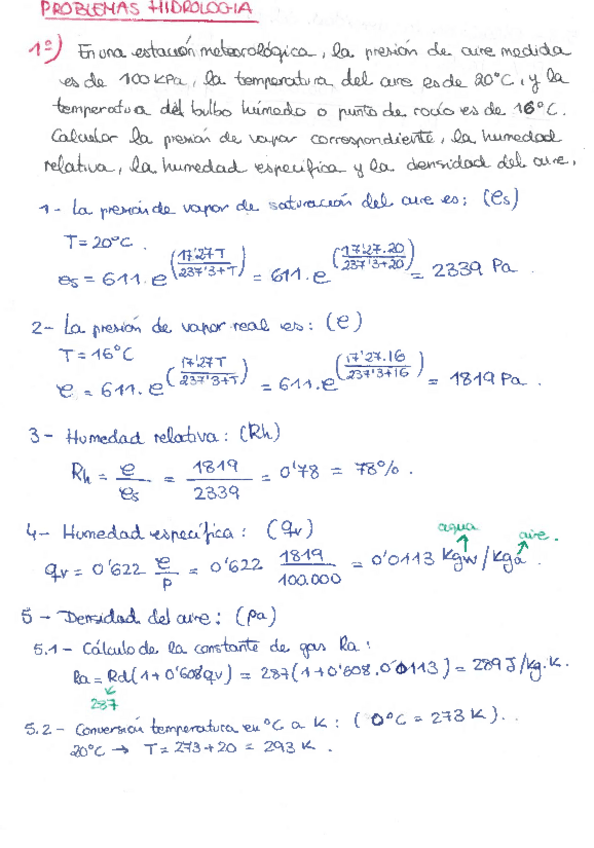 PROBLEMAS HIDROLOGIA
1º) En una estación meteorológica, la presión de aire medida
es de 100 KPa, la temperatura del aire es de 20ºC, y la
temperatura del bulbo húmedo o punto de rocío es de 16ºC.
Calcular la presión de vapor correspondiente, la humedad
relativa, la humedad específica y la densidad del aire.
1- La presión de vapor de saturación del aire es: (es)
T=20ºC.
es = 611.e^(17'27T / 237'3+T) = 611.e^(17'27.20 / 237'3+20) = 2339 Pa.
2- La presión de vapor real es: (e)
T=16ºC
e = 611.e^(17'27T / 237'3+T) = 611.e^(17'27.16 / 237'3+16) = 1819 Pa.
3- Humedad relativa: (Rh)
Rh = e / es = 1819 / 2339 = 0'78 = 78%.
4- Humedad específica: (qv) agua aire.
qv = 0'622 e / p = 0'622 1819 / 100.000 = 0'0113 Kgw/Kga.
5- Densidad del aire: (pa)
5.1- Cálculo de la constante de gas Ra:
Ra = Rd(1+0'608qv) = 287(1+0'608.0'0113) = 289 J/kg.K.
287
5.2- Conversión temperatura en ºC a K: (0ºC = 273 K).
20ºC → T=273+20 = 293 K.